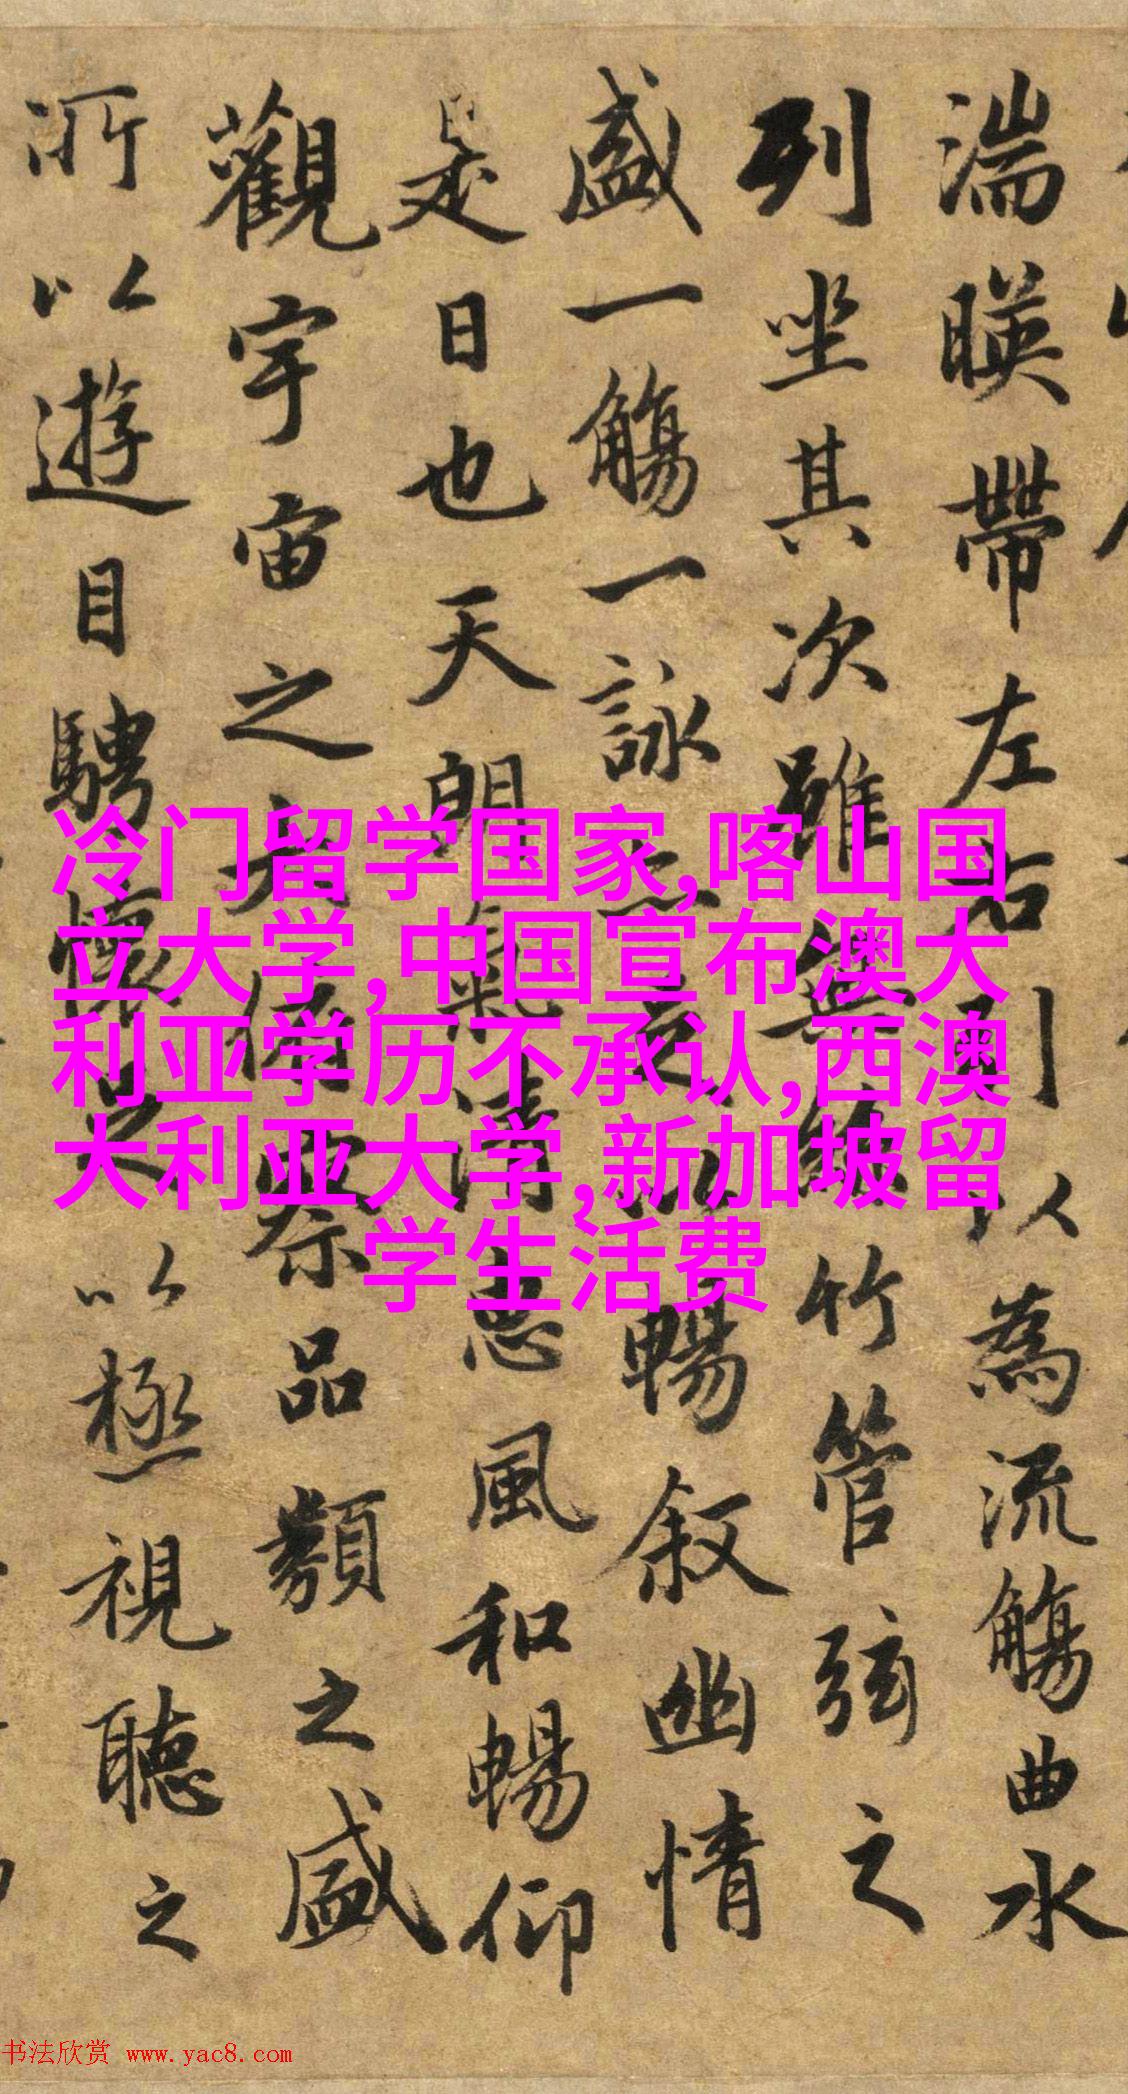 湍暎帶左右引以為流觴曲水
列坐其次雖無絲竹管弦之
盛一觴一詠亦足以暢叙幽情
是日也天朗氣清惠風和暢仰
觀宇宙之大俯察品類之盛
所以遊目騁懷足以極視聽之
冷门留学国家,喀山国
立大学,中国宣布澳大
利亚学历不承认,西澳
大利亚大学,新加坡留
学生活费
书法欣赏 www.yac8.com